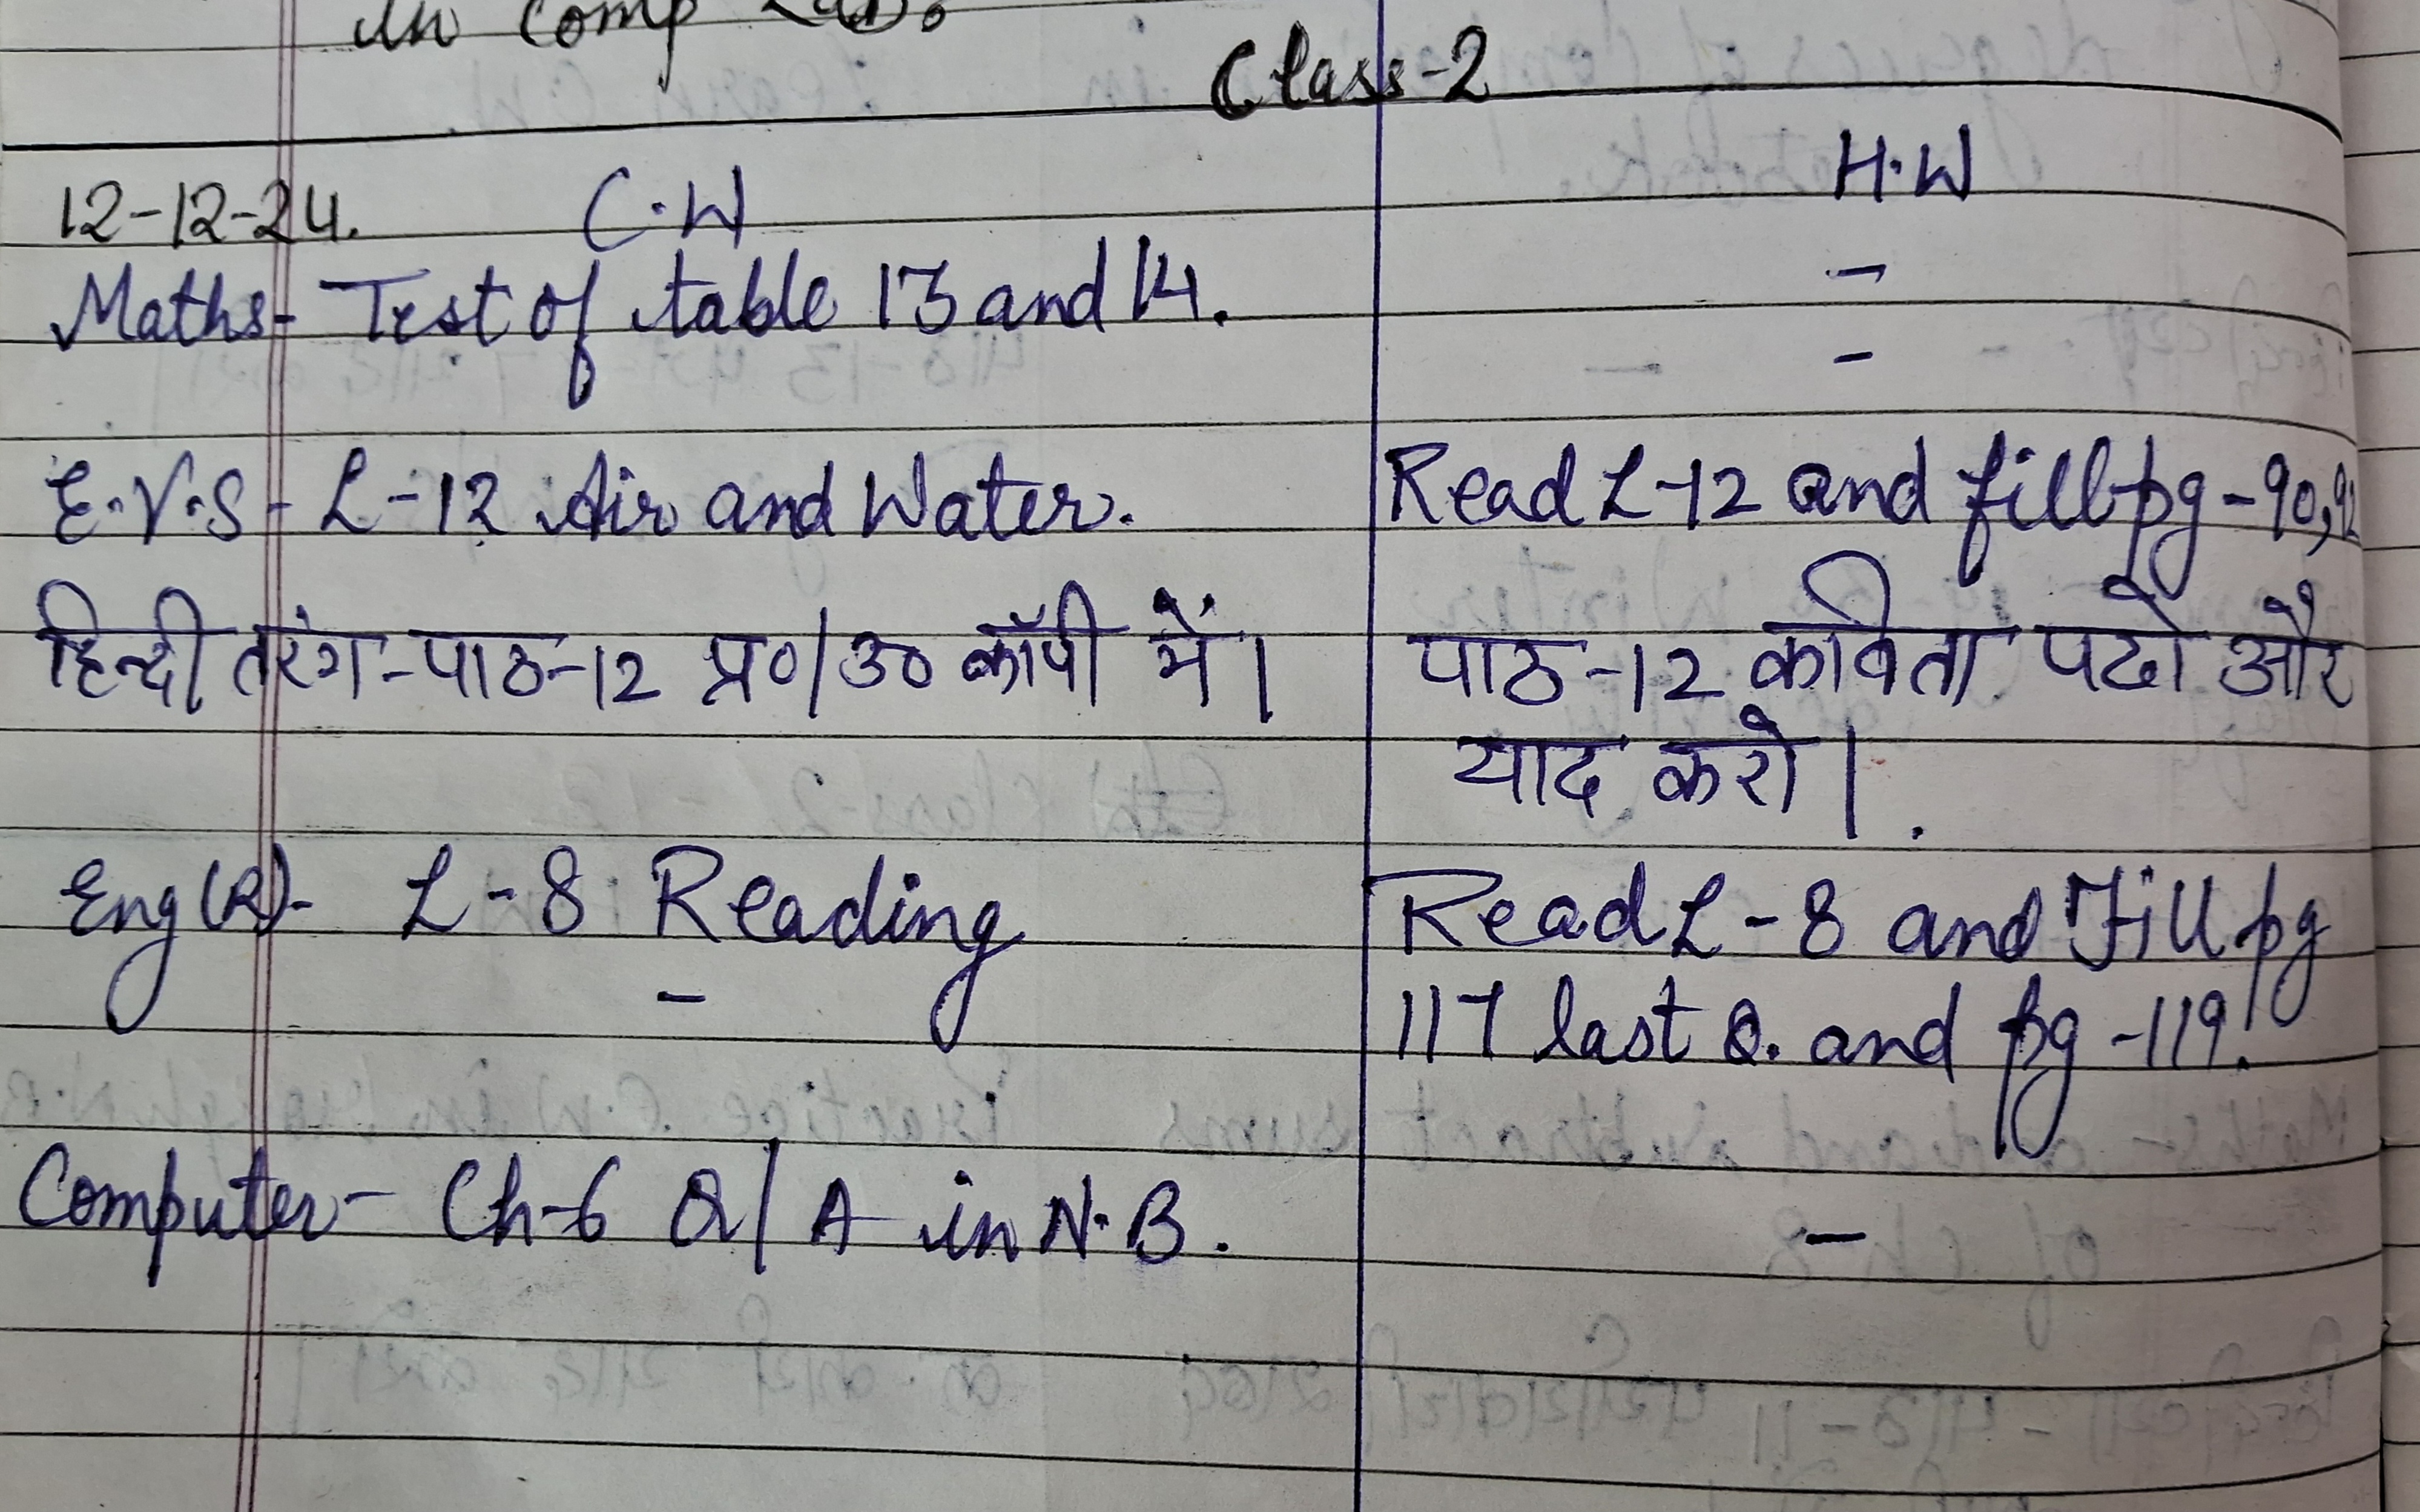 in Comp Lab.
Class-2
12-12-24. C.W H.W
Maths- Test of table 13 and 14. -
-
E.V.S - L-12 Air and Water. Read L-12 and fill pg-90,92
हिन्दी तरंग-पाठ-12 प्र०/उ० कॉपी में। पाठ-12 कविता पढो और
याद करो।
Eng (R)- L-8 Reading Read L-8 and Fill pg
- 117 last Q. and pg -119.
Computer- Ch-6 Q/A in N.B. -